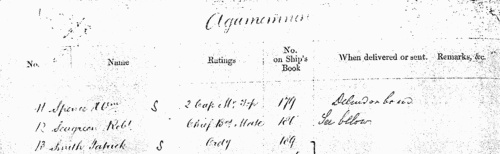 Agamemnon
No. Name Ratings No. on Ship's Book When delivered or sent. Remarks, &c.
11 Spence Wm S 2 Cap Mn Top 179 Delivd on board
12 Seagreen Robt Chief Bns Mate 181 See below
13 Smith Patrick S Ordy 189